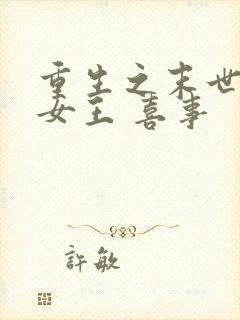 重生之末世
女主 喜事
許敏